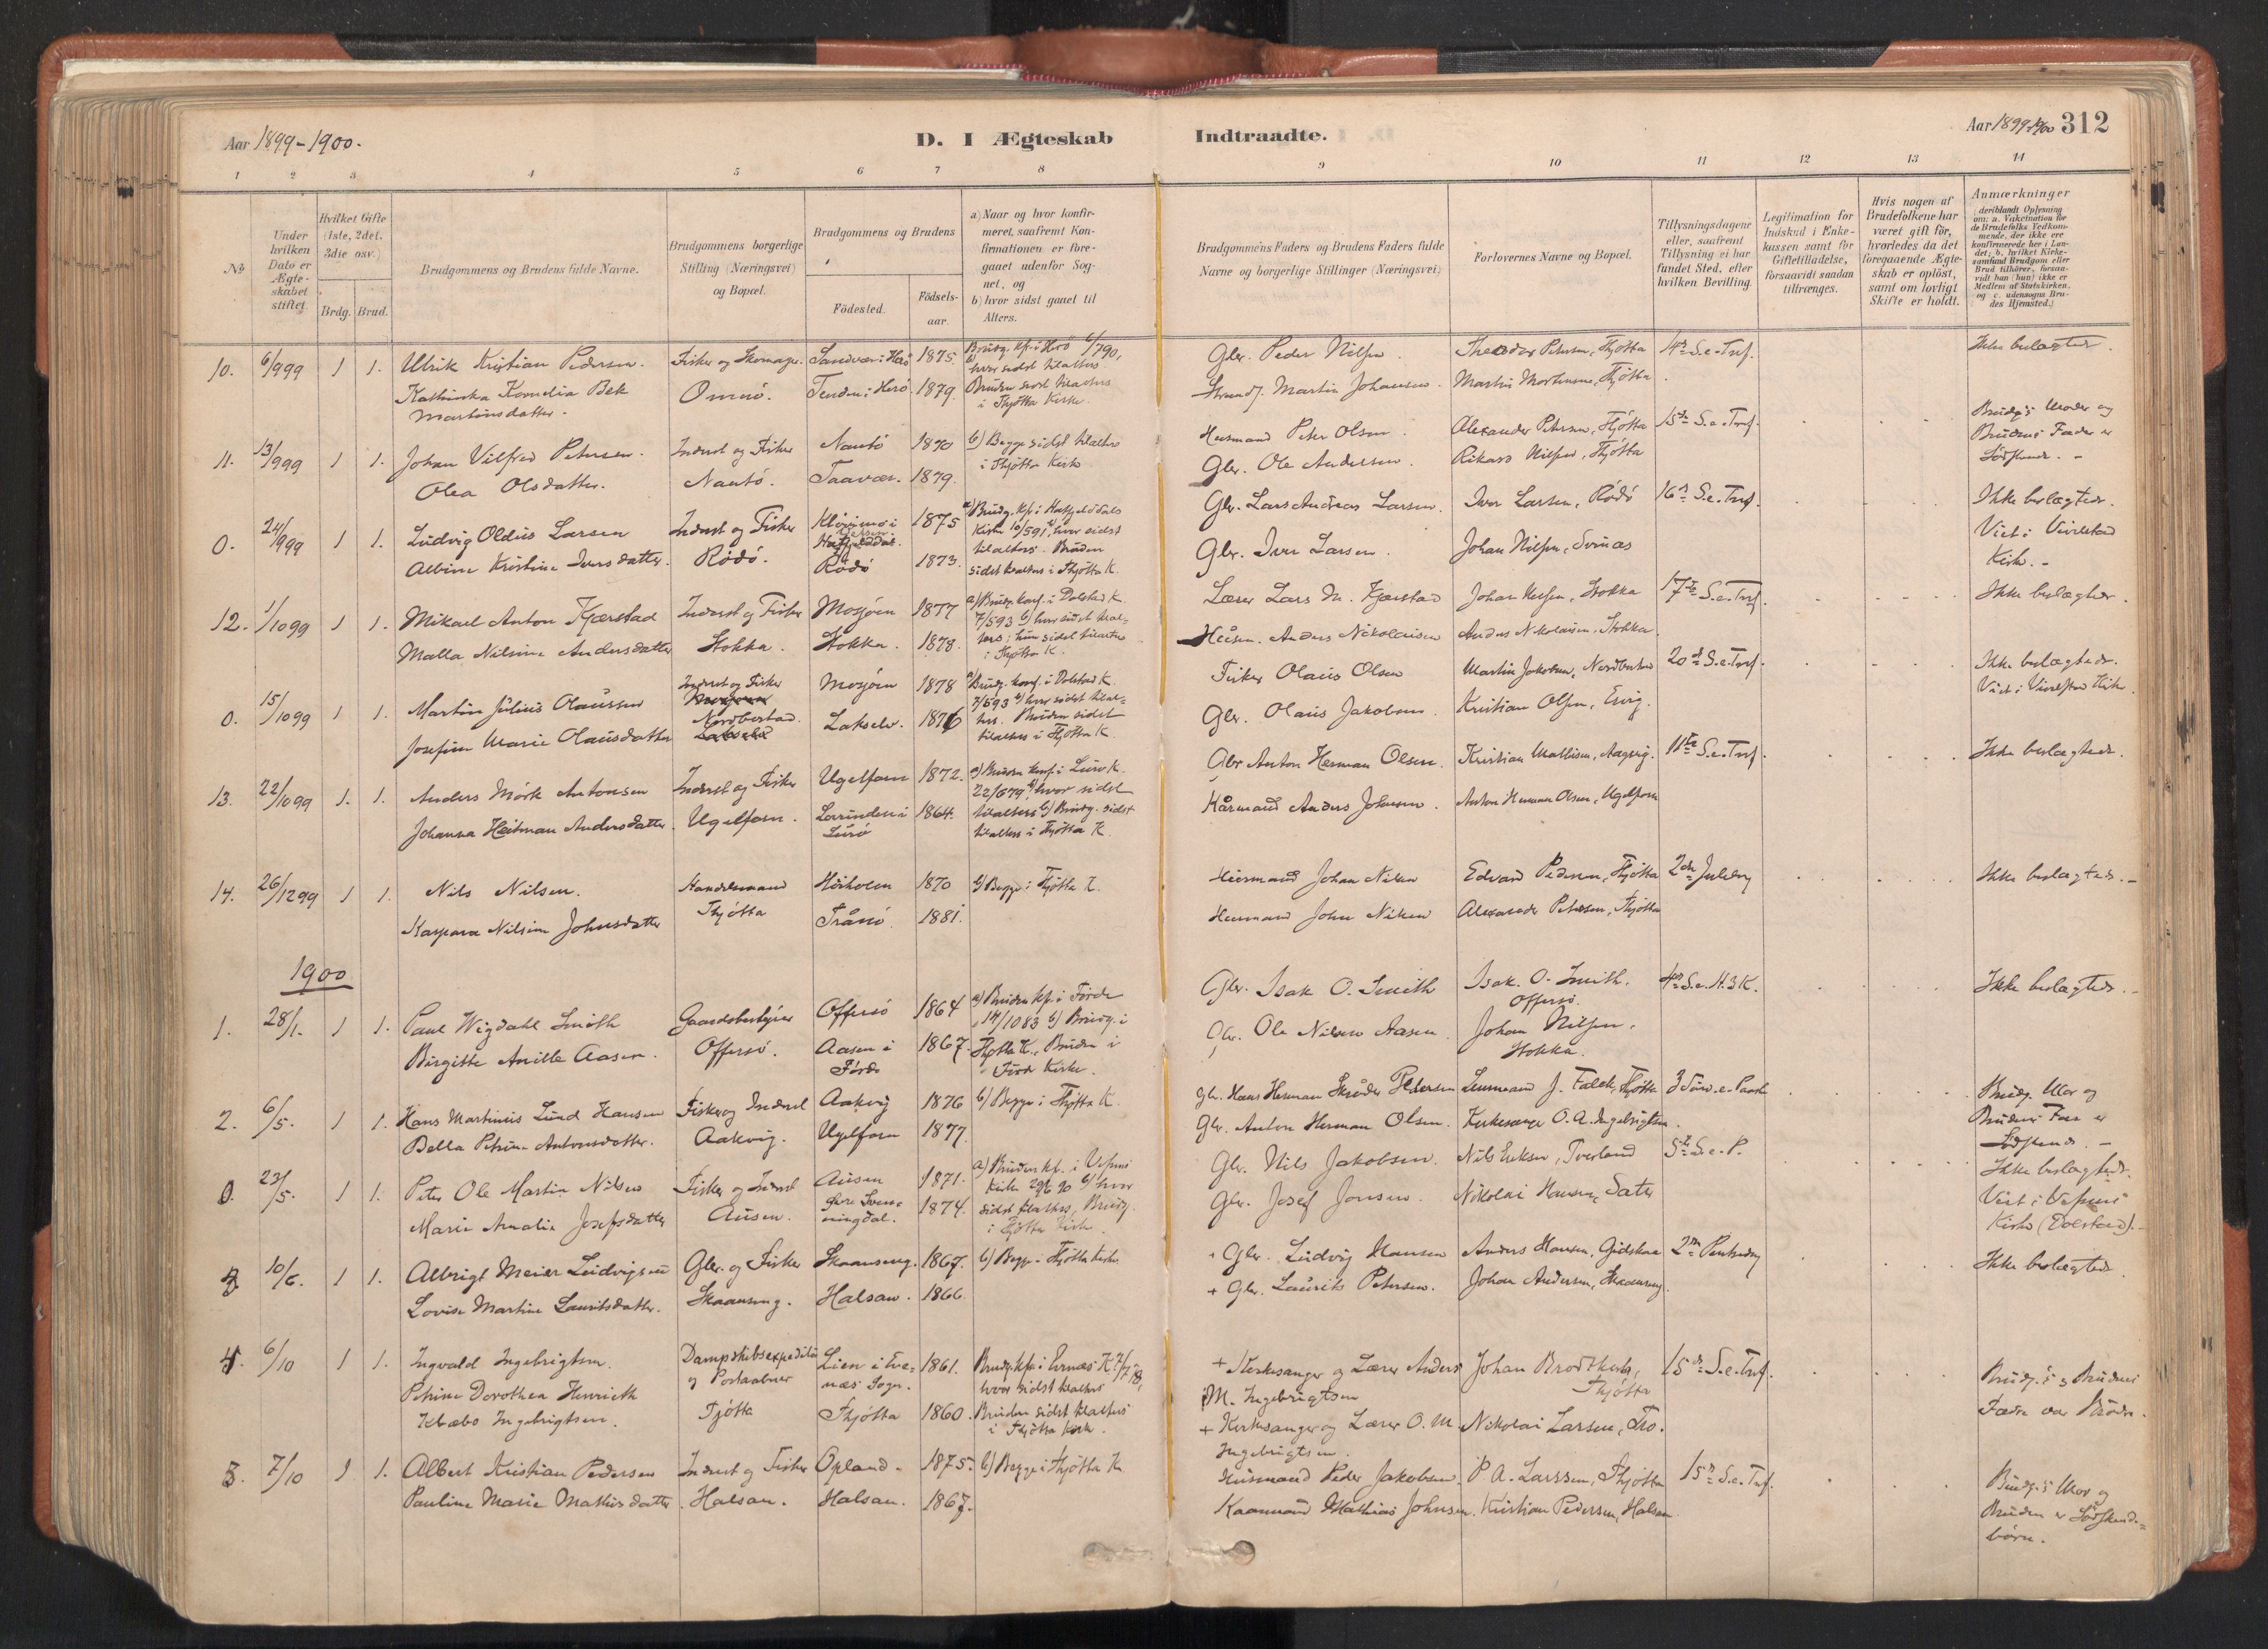 Aar 1899-1900.
D. I Ægteskab
Indtraadte.
Aar 1899-1900 312
1 2 3 4 5 6 7 8 9 10 11 12 13 14
№
Under hvilken Dato er Ægteskabet stiftet.
Hvilket Gifte (1ste, 2det, 3die osv.)
Brdg. Brud.
Brudgommens og Brudens fulde Navne.
Brudgommens borgerlige Stilling (Næringsvei) og Bopæl.
Brudgommens og Brudens
Födested.
Födselsaar.
a) Naar og hvor konfirmeret, saafremt Konfirmationen er foregaaet udenfor Sognet, og
b) hvor sidst gaaet til Alters.
Brudgommens Faders og Brudens Faders fulde Navne og borgerlige Stillinger (Næringsvei)
Forlovernes Navne og Bopæl.
Tillysningsdagene eller, saafremt Tillysning ei har fundet Sted, efter hvilken Bevilling.
Legitimation for Indskud i Enkekassen samt for Giftetilladelse, forsaavidt saadan tiltrænges.
Hvis nogen af Brudefolkene har været gift för, hvorledes da det foregaaende Ægteskab er oplöst, samt om lovligt Skifte er holdt.
Anmærkninger (deriblandt Oplysning om: a. Vakcination for de Brudefolks Vedkommende, der ikke ere konfirmerede her i Landet; b. hvilket Kirkesamfund Brudgom eller Brud tilhörer, forsaavidt han (hun) ikke er Medlem af Statskirken, og c. udensogns Brudes Hjemsted.)
10. 6/999 1 1. Ulrik Kristian Pedersen. Fisker og Skomager. Sandvær i Herö 1875. Brudg. kf. i Herö 6/790, Gbr. Peder Nilsen Theodor Petersen, Thjøtta 14de S.e.Tref. Ikke beslægtede.
Kathinka Kornelia Bek Martinsdatter. Omnö. Tenden i Herö 1879. hvor sidst tilalters. Bruden sidst tilalters i Thjøtta Kirke. Strands. Martin Johansen. Martin Mortensen, Thjøtta
11. 13/999 1 1. Johan Vilfred Petersen. Inderst og Fisker Nautö 1870 b) Begge sidst tilalters i Thjøtta Kirke. Husmand Peter Olsen. Alexander Petersen, Thjøtta 15de S.e.Tref. Brudg's Moder og Brudens Fader er Södskende.
Olea Olsdatter. Nautö. Taavær. 1879. Gbr. Ole Andersen. Rikard Nilsen, Thjøtta
0. 24/999 1 1. Ludvig Oldus Larsen Inderst og Fisker 1875 a) Brudg. kf. i Hatfjelddals Kirke 10/591, hvor sidst tilalters. Bruden sidst tilalters i Thjøtta K. Gbr. Lars Andreas Larsen. Iver Larsen, Rödö 16de S.e.Tref. Ikke beslægtede. Viet i Vivelstad Kirke.
Albine Kristine Iversdatter. Rödö. Rödö 1873. Gbr. Iver Larsen. Johan Nilsen, Svinas
12. 1/1099 1 1. Mikael Anton Kjærstad Inderst og Fisker Mosjøen 1877 a) Brudg. konf. i Dolstad K. 7/593 b) hvor sidst tilalters; hun sidst tilalters i Thjøtta K. Lærer Lars M. Kjærstad Johan Nilsen, Stokka 17de S.e.Tref. Ikke beslægtede.
Malla Nilsine Andersdatter Stokka. Stokka. 1878. Husm. Anders Nikolaisen Anders Nikolaisen, Stokka.
0. 15/1099 1 1. Martin Julius Olaussen Inderst og Fisker Nordbostad. Mosjøen 1878 a) Brudg. konf. i Dolstad K. 7/593 b) hvor sidst tilalters. Bruden sidst tilalters i Thjøtta K. Fisker Olaus Olsen Martin Jakobsen, Nordbostad 20de S.e.Tref. Ikke beslægtede. Viet i Vivelstad Kirke.
Josefine Marie Olausdatter Lakselv. 1876 Gbr. Olaus Jakobsen Kristian Olsen,
13. 22/1099 1. 1. Anders Mörk Antonsen Inderst og Fisker Ugelfarn 1872. a) Bruden konf. i Lurö K. 22/679 hvor sidst tilalters b) Brudg. sidst tilalters i Thjøtta K. Gbr Anton Herman Olsen. Kristian Mathisen, Aagvig. Ikke beslægtede.
Johanna Heitman Andersdatter. Ugelfarn. Lovunden i Lurö 1864. Kårmand Anders Johnsen. Anton Herman Olsen, Ugelfarn
14. 26/1299 1 1. Nils Nilsen. Handelsmand 1870 b) Begge i Thjøtta K. Husmand Johan Nilsen Edvard Pedersen, Thjøtta 2den Juledag Ikke beslægtede.
Kaspara Nilsine Johnsdatter Thjøtta Tranö. 1881. Husmand John Nilsen Alexander Petersen, Thjøtta
1900
1. 28/1. 1 1. Paul Wigdahl Smith Gaardsbestyrer Offersö 1864 a) Bruden kf. i Förde 14/1083 b) Brudg. i Thjøtta K., Bruden i Förde Kirke. Gbr. Isak O. Smith Isak. O. Smith. Offersö. 4de S.e.H.3K. Ikke beslægtede.
Birgitte Anille Aasen. Offersö. Aasen i Förde 1867. Gbr. Ole Nilsen Aasen. Johan Nilsen. Stokka.
2. 6/5. 1 1. Hans Martinius Lund Hansen Fisker og Inderst Aakvig 1876 b) Begge i Thjøtta K. Gbr. Hans Herman Skrøder Pedersen Lensmand J. Falck, Thjøtta 3 Sönd.e.Paaske Brudg. Mor og Brudens Far er Södskende.
Bella Petrine Antonsdatter. Aakvig. Ugelfarn 1877. Gbr. Anton Herman Olsen. Kirkesanger O.A. Ingebrigtsen.
0. 23/5. 1 1. Peter Ole Martin Nilsen Fisker og Inderst Ausen 1871. a) Bruden kf. i Vefsens Kirke 29/6 90 b) hvor sidst tilalters, Brudg. i Thjøtta Kirke. Gbr. Nils Jakobsen. Nils Eriksen, Tverland 5te S.e.P. Ikke beslægtede. Viet i Vefsens Kirke (Dolstad).
Marie Amalie Josefsdatter Ausen. Øvre Svenningdal. 1874. Gbr. Josef Jonsen. Nikolai Hansen, Sæter
3. 10/6. 1 1. Albrigt Meier Ludvigsen Gbr. og Fisker Skaanseng. 1867. b) Begge i Thjøtta Kirke + Gbr. Ludvig Hansen Anders Hansen, Gidskaa 2den Pintsedag Ikke beslægtede.
Lovise Martine Lauritsdatter. Skaanseng. Halsan. 1866. + Gbr. Laurits Petersen. Johan Andersen, Skaanseng.
4. 6/10 1 1. Ingvald Ingebrigtsen. Dampskibsexpeditör og Postaabner Lien i Evenæs Sogn. 1861. Brudg. kf. i Evnæs K. 7/7 78, hvor sidst tilalters. + Kirkesanger og Lærer Anders M. Ingebrigtsen Johan Brodtkorb, Thjøtta 15de S.e.Tref. Brudg's og Brudens Fædre var Brödre.
Petrine Dorothea Henrieth Klæbo Ingebrigtsen. Tjøtta Thjøtta 1860. Bruden sidst tilalters i Thjøtta Kirke. + Kirkesanger og Lærer O. M. Ingebrigtsen. Nikolai Larsen, Tro.
5. 7/10 1 1. Albert Kristian Pedersen Inderst og Fisker Opland. 1875. b) Begge i Thjøtta K Husmand Peder Jakobsen. P A. Larssen, Thjøtta 15de S.e.Tref. Brudg's Mor og Bruden er Södskendebörn.
Pauline Marie Mathisdatter. Halsan. Halsan. 1867. Kaarmand Mathias Johnsen. Kristian Pedersen, Halsan